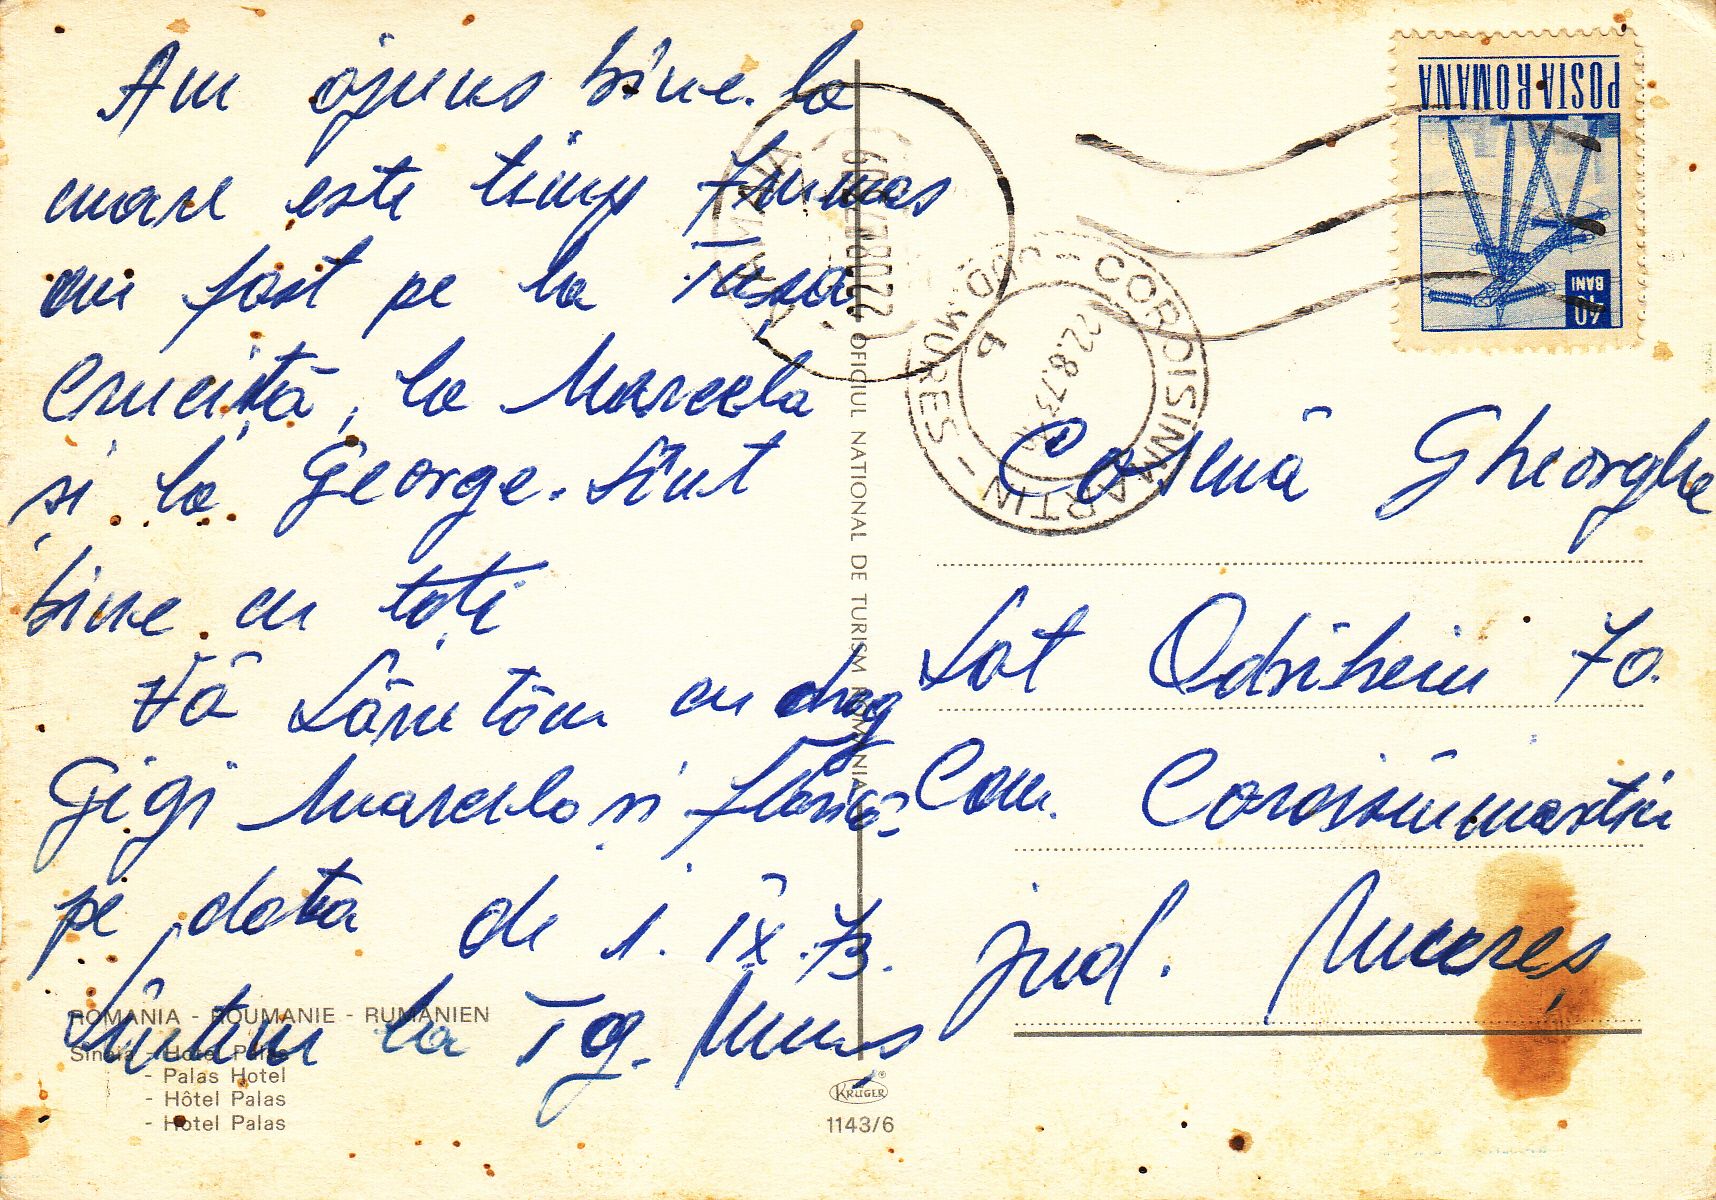 Am ajuns bine. la
mare este timp frumos
am fost pe la Tușa
Cruciță, la Marcela
și la George. Sînt
bine cu toți
Vă Sărutăm cu drag
Gigi Marcela și Florica
pe data de 1. IX. 73.
Sîntem la Tg. Mureș
ROMÂNIA - ROUMANIE - RUMÄNIEN
Sinaia - Hotel Palas
- Palas Hotel
- Hôtel Palas
- Hotel Palas
OFICIUL NATIONAL DE TURISM ROMÂNIA
KRÜGER
1143/6
POSTA ROMANA
40 BANI
COROISÎNMARTIN
JUD. MUREȘ
22.8.73
b
Cosmă Gheorghe
Sat Odrihei 70.
Com. Coroisînmartin
jud. Mureș